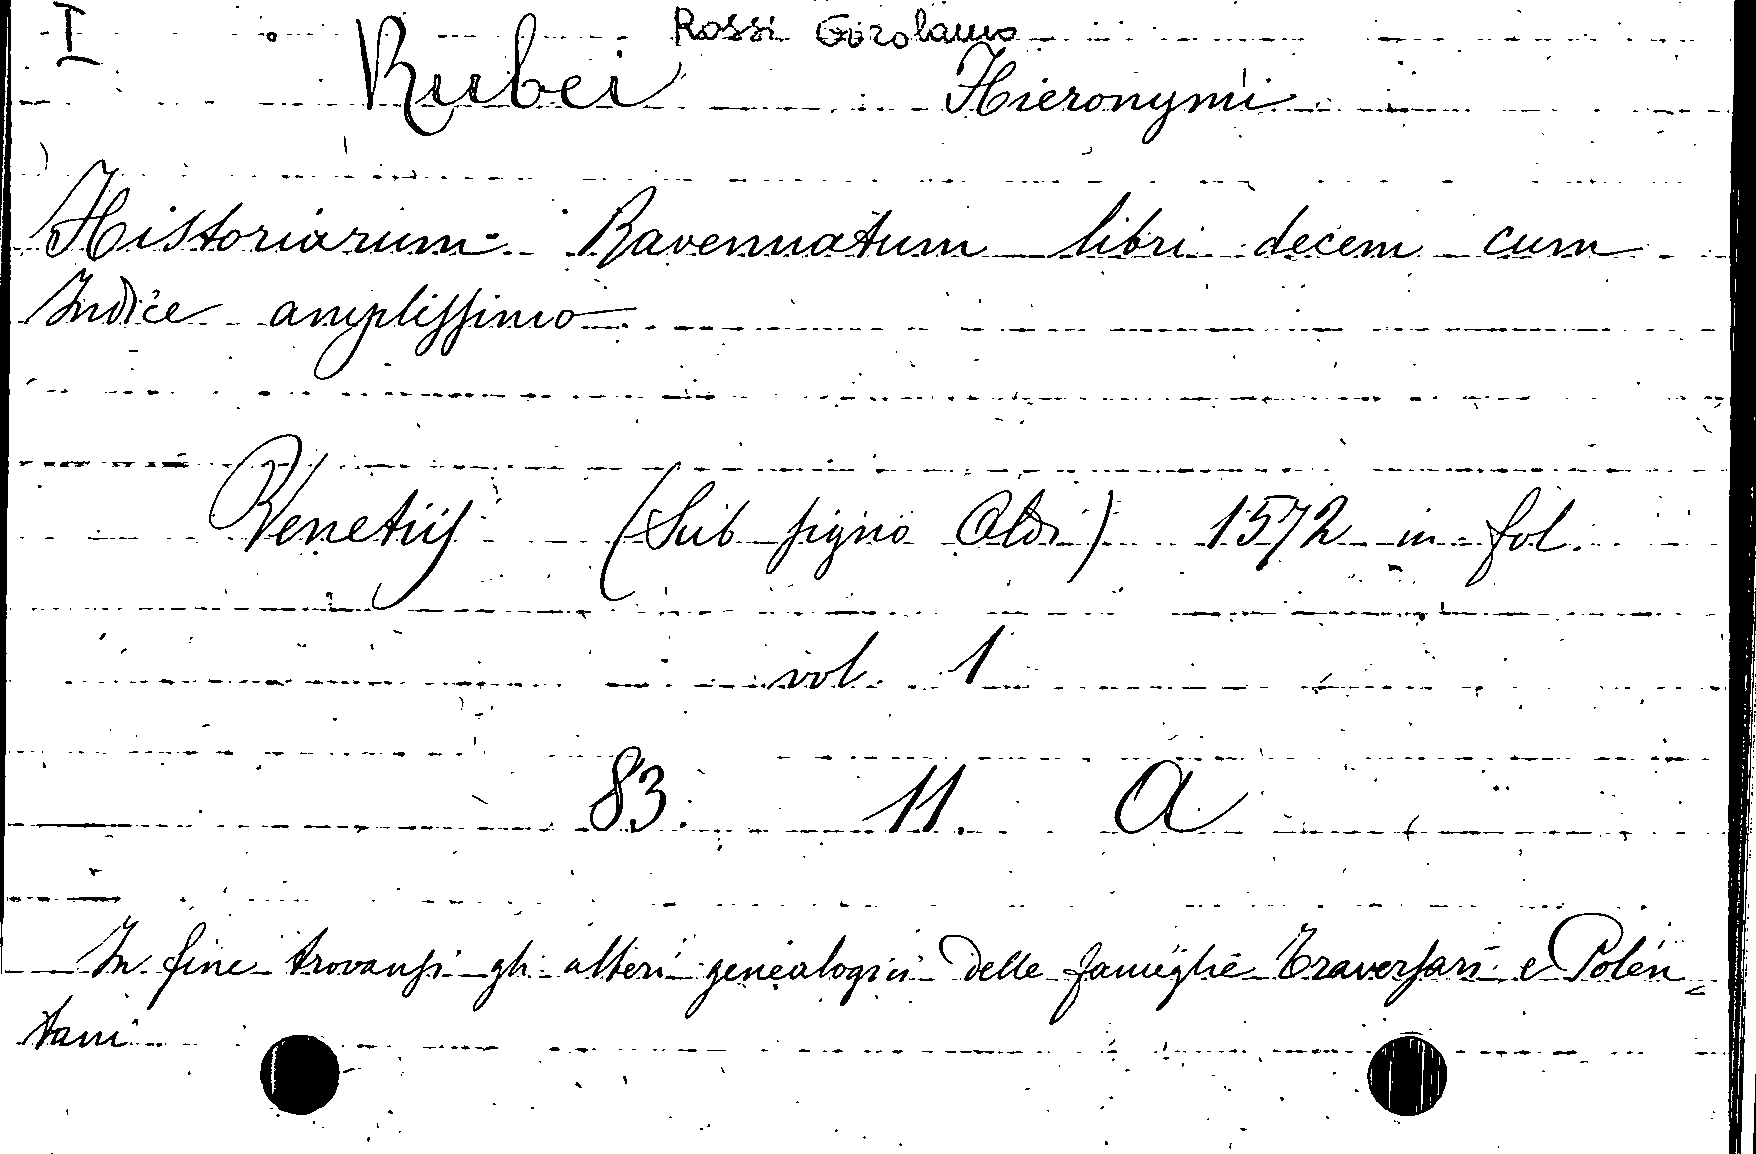 I
Rossi Girolamo
Rubei Hieronymi
Historiarum Ravennatum libri decem cum
Indice amplissimo
Venetiis (Sub signo Aldi) 1572 in fol.
vol. 1
83. 11. A
In fine trovansi gli alberi genealogici delle famiglie Traversari e Polen
tani